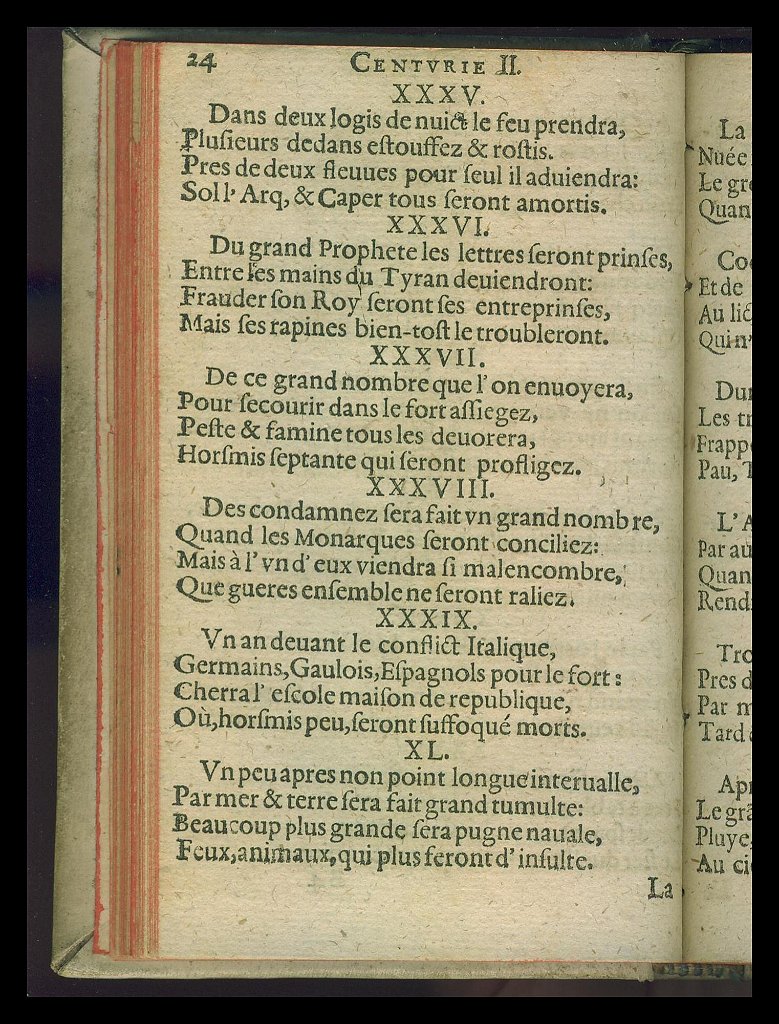 24 CENTVRIE II.
XXXV.
Dans deux logis de nuict le feu prendra,
Pluſieurs dedans eſtouffez & roſtis.
Pres de deux fleuues pour ſeul il aduiendra:
Sol l' Arq, & Caper tous ſeront amortis.
XXXVI.
Du grand Prophete les lettres ſeront prinſes,
Entre les mains du Tyran deuiendront:
Frauder ſon Roy ſeront ſes entreprinſes,
Mais ſes rapines bien-toſt le troubleront.
XXXVII.
De ce grand nombre que l'on enuoyera,
Pour ſecourir dans le fort aſſiegez,
Peſte & famine tous les deuorera,
Horſmis ſeptante qui ſeront profligez.
XXXVIII.
Des condamnez ſera fait vn grand nombre,
Quand les Monarques ſeront conciliez:
Mais à l'vn d'eux viendra ſi malencombre,
Que gueres enſemble ne ſeront raliez.
XXXIX.
Vn an deuant le conflict Italique,
Germains, Gaulois, Eſpagnols pour le fort:
Cherra l'eſcole maiſon de republique,
Où, horſmis peu, ſeront ſuffoqué morts.
XL.
Vn peu apres non point longue interualle,
Par mer & terre ſera fait grand tumulte:
Beaucoup plus grande ſera pugne nauale,
Feux, animaux, qui plus feront d'inſulte.
La
La
Nuée
Le gr
Quan
Et de
Au
Les
Pau,
L'A
Par au
Quan
Rend
Pres d
Par m
Tard
Pluye,
Au